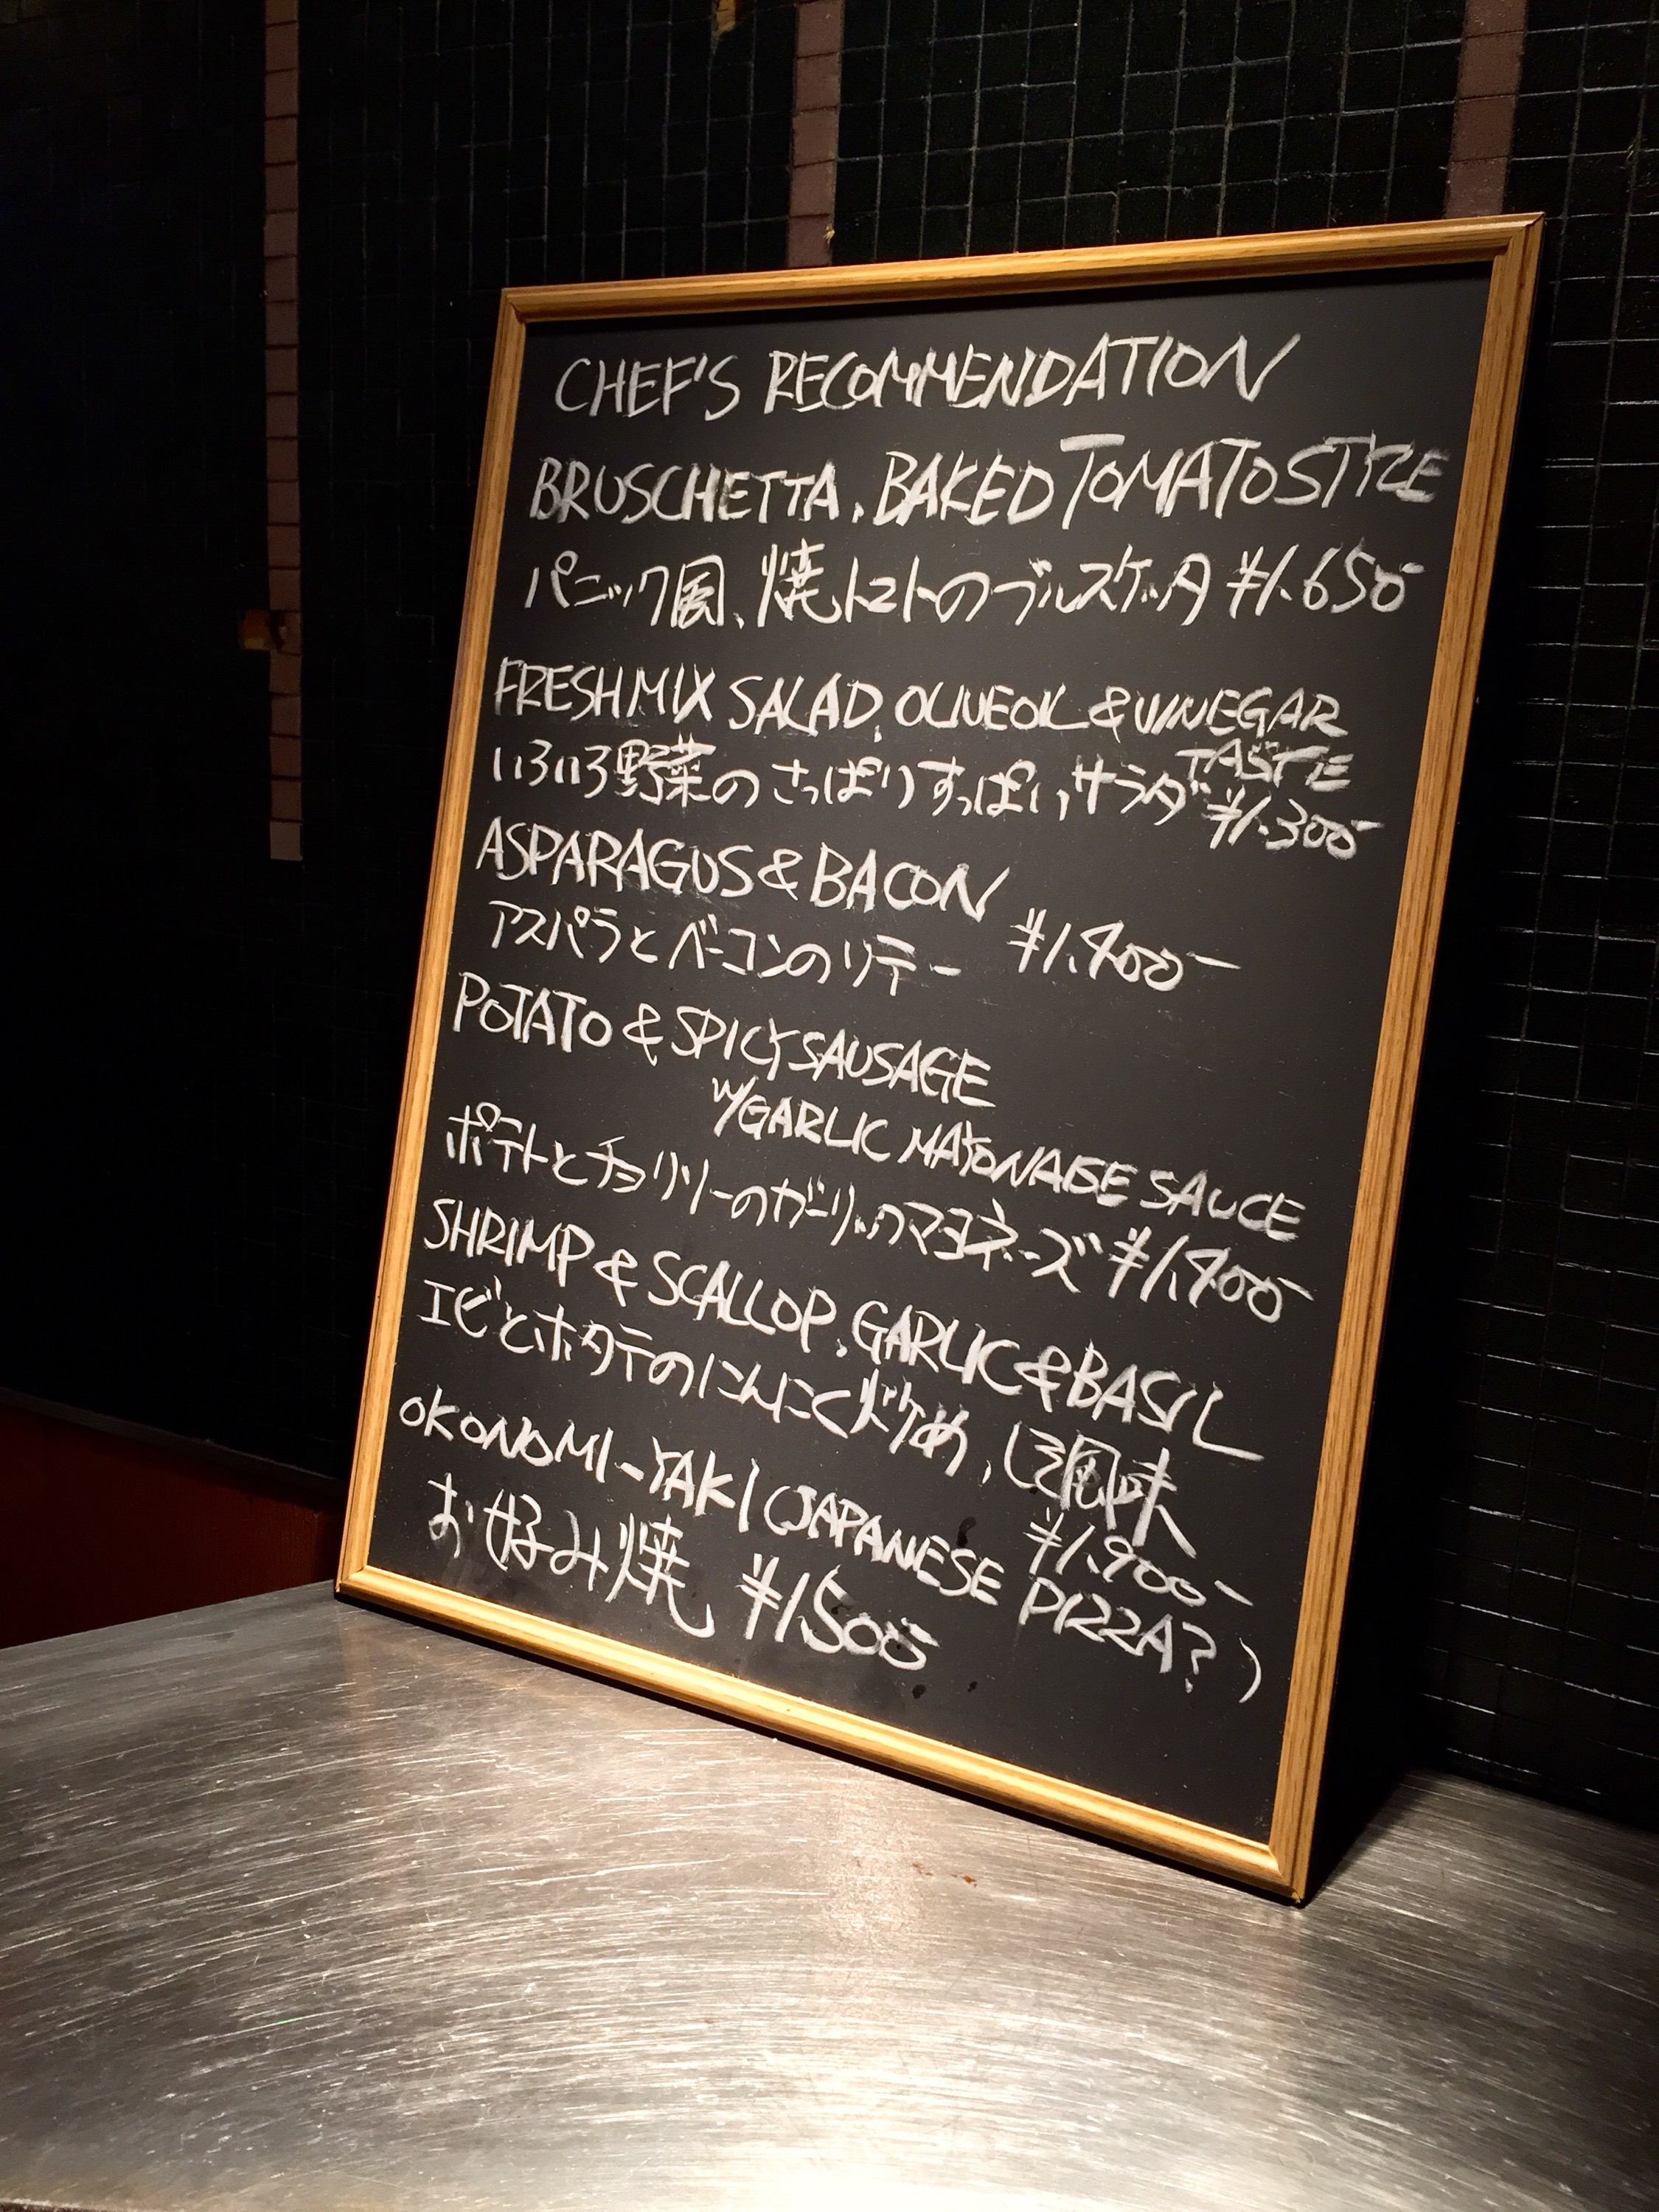 CHEF'S RECOMMENDATION
BRUSCHETTA, BAKED TOMATO STYLE
パニック風、焼トマトのブルスケッタ ¥1.650
FRESH MIX SALAD, OLIVEOIL & VINEGAR
TASTE
いろいろ野菜のさっぱりすっぱいサラダ ¥1.300-
ASPARAGUS & BACON
アスパラとベーコンのソテー ¥1.400-
POTATO & SPICY SAUSAGE
W/GARLIC MAYONAISE SAUCE
ポテトとチョリソーのガーリックマヨネーズ ¥1.400-
SHRIMP & SCALLOP, GARLIC & BASIL
エビとホタテのにんにく炒め、しそ風味
¥1.900-
OKONOMI-YAKI (JAPANESE PIZZA?)
お好み焼 ¥1500